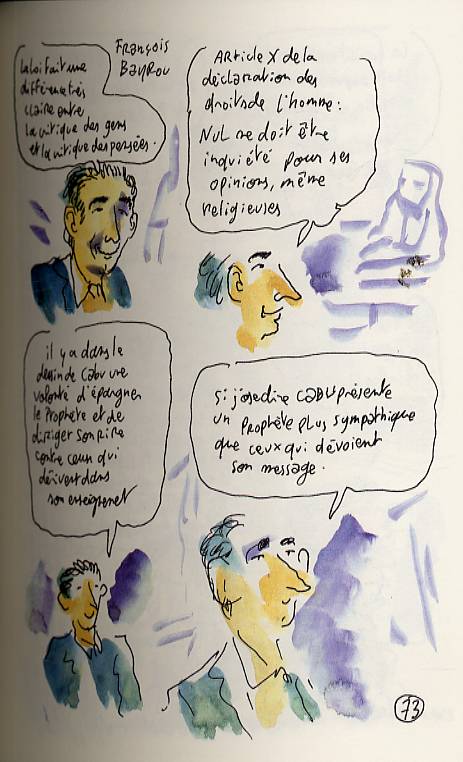 La loi fait une
différence très
claire entre
la critique des gens
et la critique des pensées.
François
Bayrou
Article X de la
déclaration des
droits de l'homme:
Nul ne doit être
inquiété pour ses
opinions, même
religieuses
il y a dans le
dessin de Cabu une
volonté d'épargner
le Prophète et de
diriger son rire
contre ceux qui
dérivent dans
son enseignement
Si j'ose dire CABU présente
un Prophète plus sympathique
que ceux qui dévoient
son message.
73